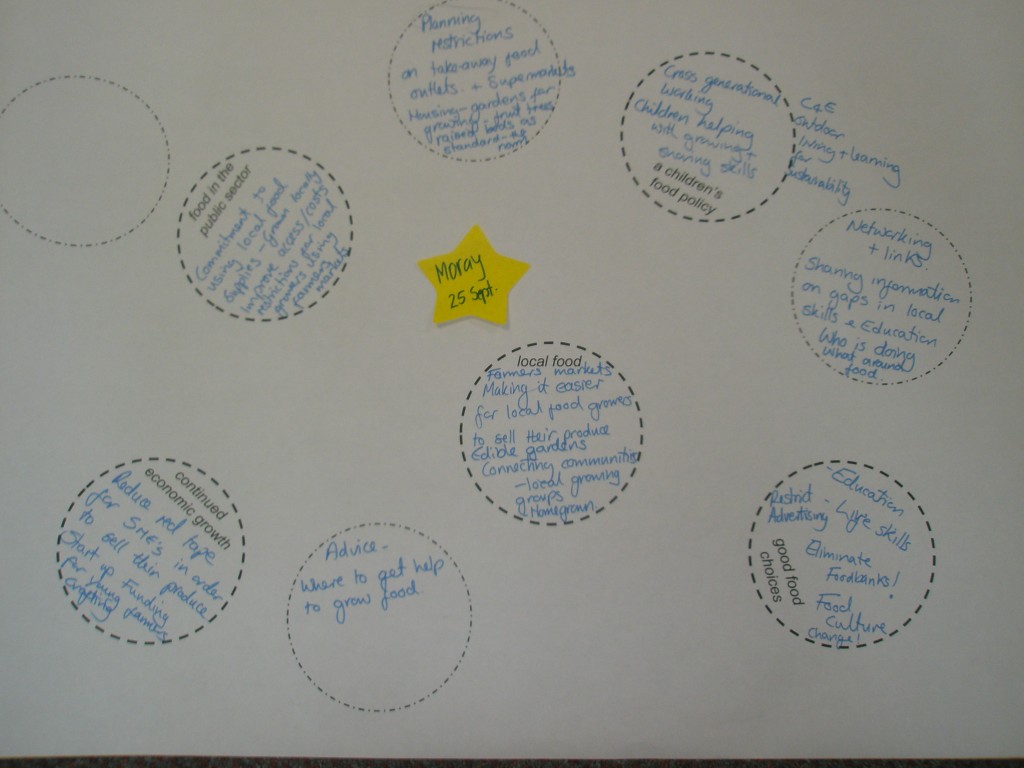 Planning
restrictions
on take-away food
outlets. + Supermarkets
Housing - gardens for
growing - fruit trees
raised beds as
standard - as
norm
Cross generational
Working
Children helping
with growing +
sharing skills
a children's
food policy
CfE
outdoor
living + learning
for
sustainability
food in the
public sector
Commitment to
using local food
supplies - grown locally
improve access/costs/
restrictions for local
growers using
farmers
markets
Moray
25 Sept.
Networking
+ links.
Sharing information
on gaps in local
skills & Education
Who is doing
what around
food
local food
Farmers markets
Making it easier
for local food growers
to sell their produce
Edible gardens
Connecting communities
- local growing
groups
& Homegrown.
continued
economic growth
Reduce red tape
for SME's in order
to sell their produce
Start up Funding
for young families
crofting
Advice -
Where to get help
to grow food.
- Education
Restrict - Lyfe skills
Advertising
Eliminate
Foodbanks!
good food
choices
Food
Culture
change!